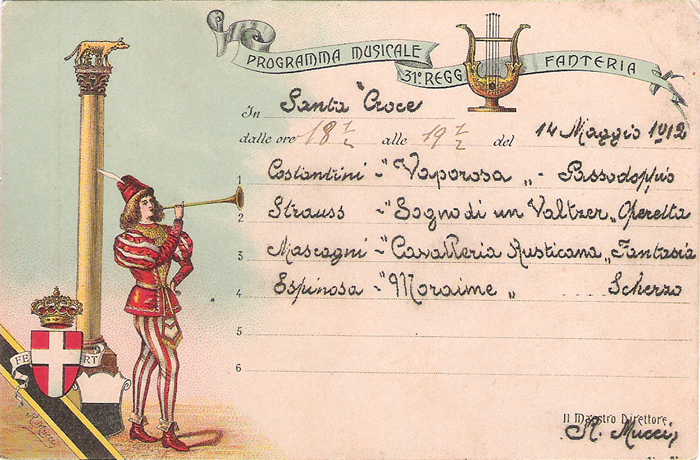 PROGRAMMA MUSICALE
31º REGG FANTERIA
In Santa Croce
dalle ore 18 1/2 alle 19 1/2 del 14 Maggio 1912
1 Costantini - "Vaporosa„ - Passodoppio
2 Strauss - "Sogno di un Valtzer„ Operetta
3 Mascagni - "Cavalleria Rusticana„ Fantasia
4 Espinosa - "Moraime„ Scherzo
5
6
FERT
Il Maestro Direttore
R. Mucci